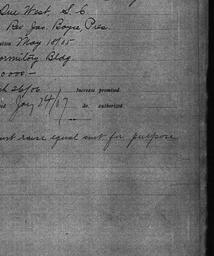 Due West. S. C.
Rev. Jas. Boyce, Pres.
May 18/05
ormitory Bldg.
0000 -
ch 26/06 Increase promised.
Jany 24/07 Do. authorized.
ust raise equal amt for purpose